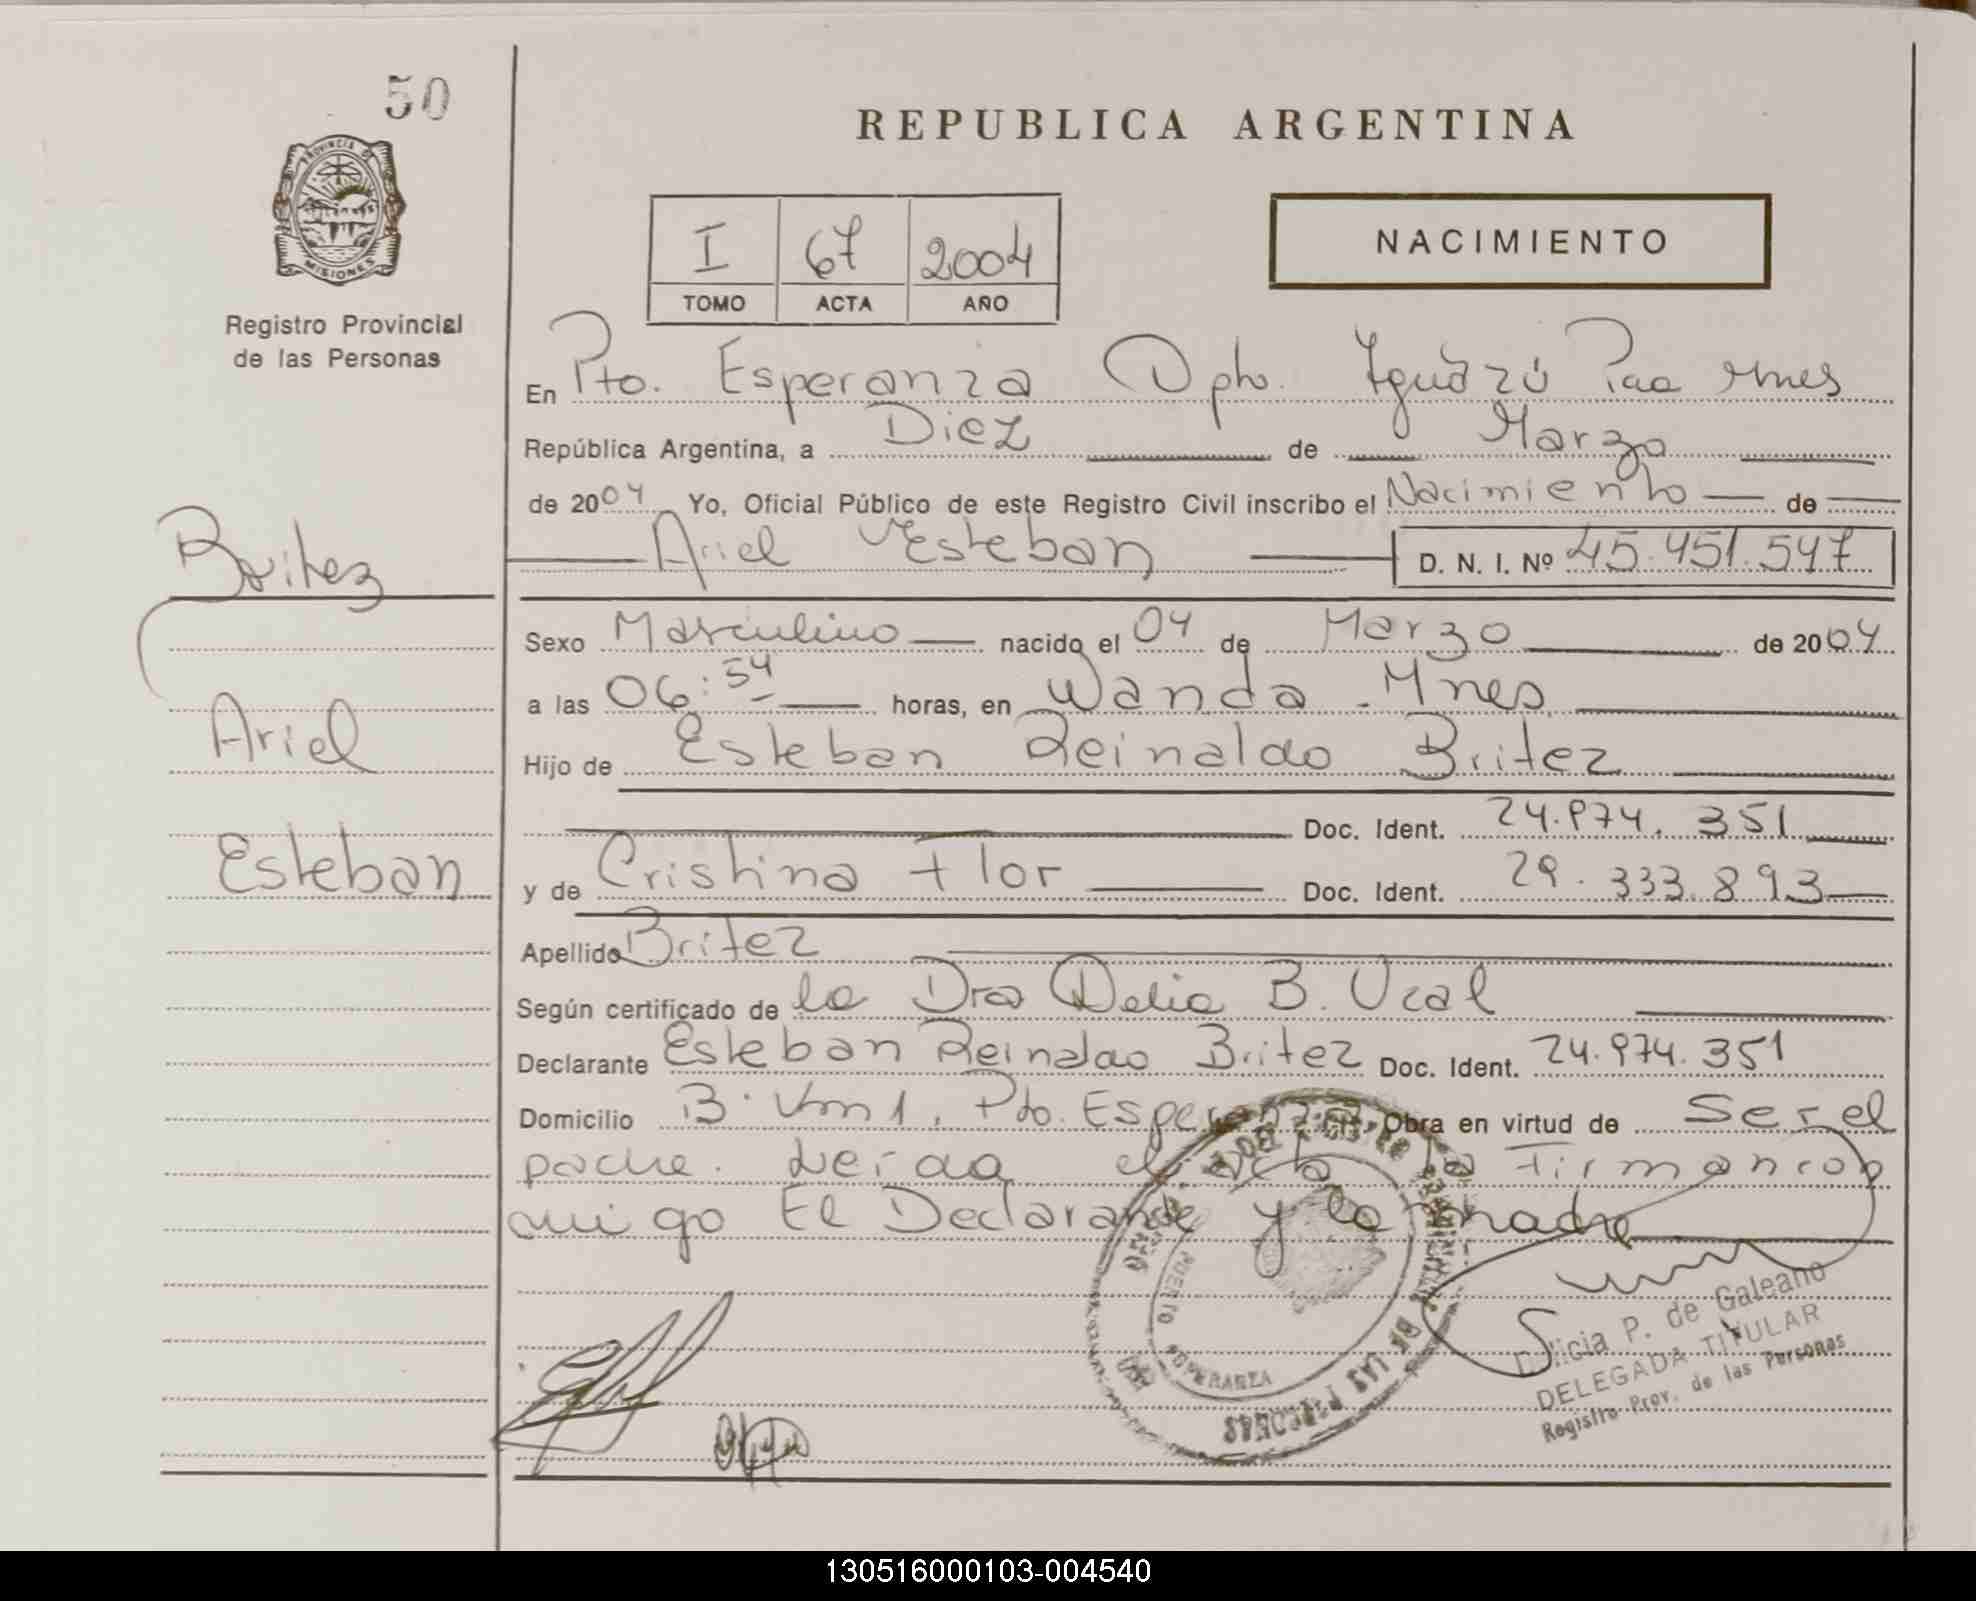 50
PROVINCIA DE
MISIONES
Registro Provincial
de las Personas
REPUBLICA ARGENTINA
I 67 2004
TOMO ACTA AÑO
NACIMIENTO
En Pto. Esperanza Dpto. Iguazú Pcia Mnes
República Argentina, a Diez de Marzo
de 2004 Yo, Oficial Público de este Registro Civil inscribo el Nacimiento de
Ariel Esteban D. N. I. Nº 45.451.547
Britez
Ariel
Esteban
Sexo Masculino nacido el 04 de Marzo de 2004
a las 06:54 horas, en Wanda - Mnes
Hijo de Esteban Reinaldo Britez
Doc. Ident. 24.974.351
y de Cristina Flor Doc. Ident. 29.333.893
Apellido Britez
Según certificado de la Dra Delia B.
Declarante Esteban Reinaldo Britez Doc. Ident. 24.974.351
Domicilio B. Km 1, Pto. Esperanza. Obra en virtud de Ser el
padre. Leida el acta la Firman con
migo El Declarante y la madre
PUERTO ESPERANZA
DE LAS PERSONAS
P. de Galeano
DELEGADA TITULAR
Registro Prov. de las Personas
130516000103-004540